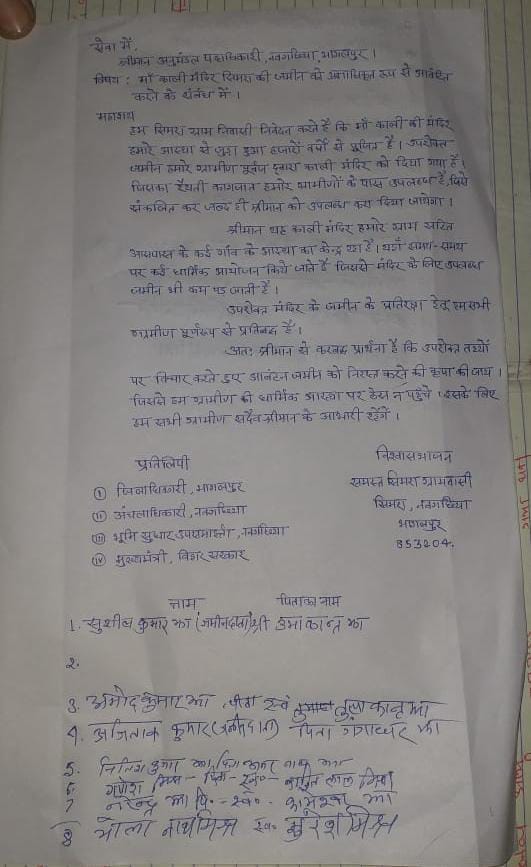 सेवा में,
श्रीमान अनुमंडल पदाधिकारी, नवगछिया, भागलपुर ।
विषय : माँ काली मंदिर सिमरा की जमीन को अनाधिकृत रूप से आवंटित
करने के संबंध में ।
महाशय
हम सिमरा ग्राम निवासी निवेदन करते हैं कि माँ काली की मंदिर
हमारे आस्था से जुड़ा हुआ हजारों वर्षो से पूजित है । उपरोक्त
जमीन हमारे ग्रामीण पूर्वज द्वारा काली मंदिर को दिया गया है ।
जिसका रैयती कागजात हमारे ग्रामीणों के पास उपलब्ध है, जिसे
संकलित कर जल्द ही श्रीमान को उपलब्ध करा दिया जायेगा ।
श्रीमान यह काली मंदिर हमारे ग्राम सहित
आसपास के कई गाँव के आस्था का केन्द्र रहा है । यहाँ समय-समय
पर कई धार्मिक आयोजन किये जाते हैं जिससे मंदिर के लिए उपलब्ध
जमीन भी कम पड़ जाती है ।
उपरोक्त मंदिर के जमीन के प्रतिरक्षा हेतु हम सभी
ग्रामीण पूर्णरूप से प्रतिबद्ध हैं ।
अतः श्रीमान से करबद्ध प्रार्थना है कि उपरोक्त तथ्यों
पर विचार करते हुए आवंटन जमीन को निरस्त करने की कृपा की जाय ।
जिससे हम ग्रामीण की धार्मिक आस्था पर ठेस न पहुँचे । इसके लिए
हम सभी ग्रामीण सदैव श्रीमान के आभारी रहेंगे ।
विश्वासभाजन
समस्त सिमरा ग्रामवासी
सिमरा, नवगछिया
भागलपुर
853204.
प्रतिलिपी
(i) जिलाधिकारी, भागलपुर
(ii) अंचलाधिकारी, नवगछिया
(iii) भूमि सुधार उपसमाहर्ता, नवगछिया
(iv) मुख्यमंत्री, बिहार सरकार
नाम पिता का नाम
1. सुशील कुमार झा (जमीनदाता) श्री उमाकान्त झा
2.
3. अमोद कुमार झा, पिता स्व
4. कुमार पिता गंगाधर झा
5. नितिश कुमार झा
6 गणेश मिश्र - पिता - स्व० - लाल मिश्र
7 नरेन्द्र झा पि. - स्व० - कामेश्वर झा
8 भोला नाथ मिश्र स्व० सुरेश मिश्र